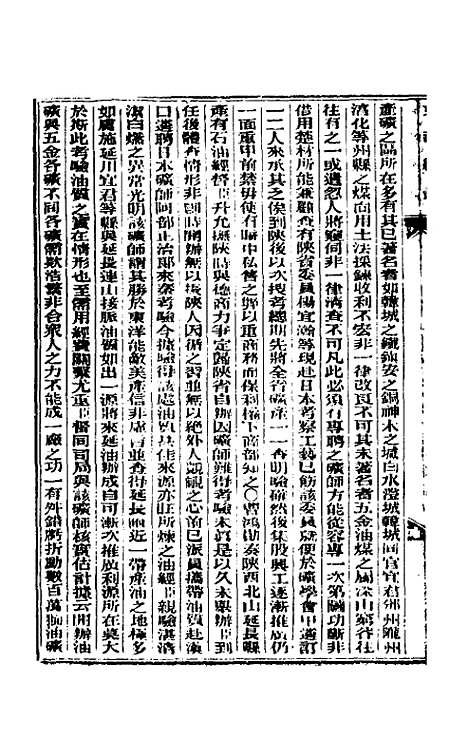 產礦之區所在多有其已著名者如韓城之鐵鎮安之銅神木之堿白水澄城韓城同官宜君邠州隴州
淳化等州縣之煤而用土法採鍊收利不宏非一律改良不可其未著名者五金油煤之屬深山窮谷往
往有之一或遺忽人將窺伺非一律清查不可凡此必須有專聘之礦師方能從容專一次第圖功斷非
借用楚材所能兼顧查有陝省委員楊宜瀚等現赴日本考察工藝已飭該委員就便於礦學會中選訂
一二人來承其乏俟到陝後以次搜考總期先將全省礦產一一查明確然後集股興工逐漸推廣仍
一面重申前禁毋使有暗中私售之弊以重商務而保利權下商部知之〇曹鴻勛奏陝西北山延長縣
產有石油經前 升允派 時與德商力爭定歸陝省自辦因礦師難得考驗未真是以久未舉辦臣到
任後體查情形非剋時開辦無以後陝人因循之習並無以絕外人覬覦之心前已派員攜帶油質赴漢
口選聘日本礦師阿部正治郎來秦考驗今據驗得該處油質甚佳來源亦旺所煉之油經臣親驗湛清
潔白爇之異常光明該礦師謂其勝於東洋能敵美產信非虛 並查得延長附近一帶產油之地極多
如膚施延川宜君等縣與延長連山接脈油質如出一源將來延油辦成自可漸次推廣利源所在莫大
於斯此考驗油質之實在情形也至需用經費關繫尤重臣督同司局與該礦師核實估計據云開辦油
礦與五金各礦不同各礦需款浩繁非合眾人之力不能成一廠之功一有外錯虧折動數百萬獨油礦